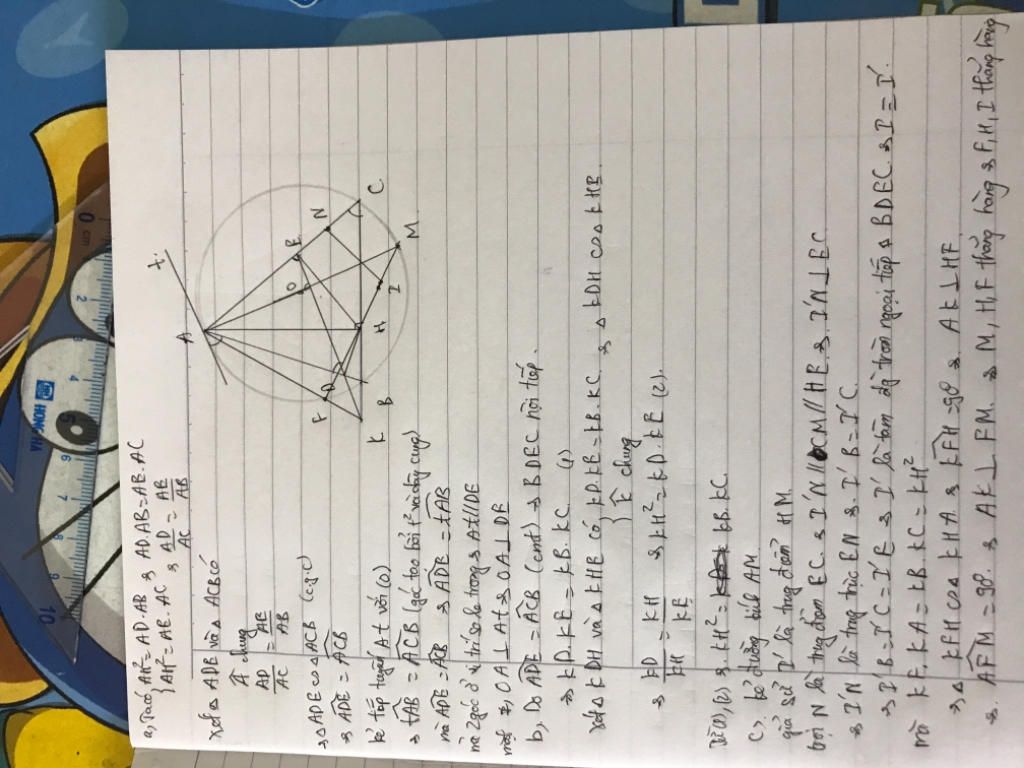 a, Ta có AH² = AD.AB ⇒ AD.AB = AE.AC
{ AH² = AE.AC ⇒ AD/AC = AE/AB
Xét Δ ADE và Δ ACB có
Â chung
AD/AC = AE/AB
⇒ Δ ADE ∽ Δ ACB (c.g.c)
⇒ ADE = ACB
kẻ tiếp tuyến At với (O)
⇒ tAB = ACB (góc tạo bởi t² và dây cung)
mà ADE = ACB ⇒ ADE = tAB
mà 2 góc ở vị trí so le trong ⇒ At // DE
mặt ≠, OA ⊥ At ⇒ OA ⊥ DE
b, Do ADE = ACB (cmt) ⇒ BDEC nội tiếp.
⇒ KD.KE = KB.KC (1)
Xét Δ KDH và Δ KHE có KD.KE = KB.KC.
} K chung
⇒ Δ KDH ∽ Δ KHE.
⇒ KD/KH = KH/KE ⇒ KH² = KD.KE (2).
Từ (1), (2) ⇒ KH² = KB.KC.
c, kẻ đường kính AM
giả sử I' là trung điểm HM
gọi N là trung điểm EC ⇒ I'N // CM // HE ⇒ I'N ⊥ EC
⇒ I'N là trung trực EN ⇒ I'B = I'C
⇒ I'B = I'C = I'E ⇒ I' là tâm đg tròn ngoại tiếp Δ BDEC ⇒ I = I'
mà KF.KA = KB.KC = KH²
⇒ Δ KFH ∽ Δ KHA ⇒ KFH = 90° ⇒ AK ⊥ HF
⇒ AFM = 90° ⇒ AK ⊥ FM ⇒ M, H, F thẳng hàng ⇒ F, H, I thẳng hàng
A
t
F
D
O
E
N
K
B
H
I
C
M
HONG HA
0 cm
2
4
6
7
8
9
10